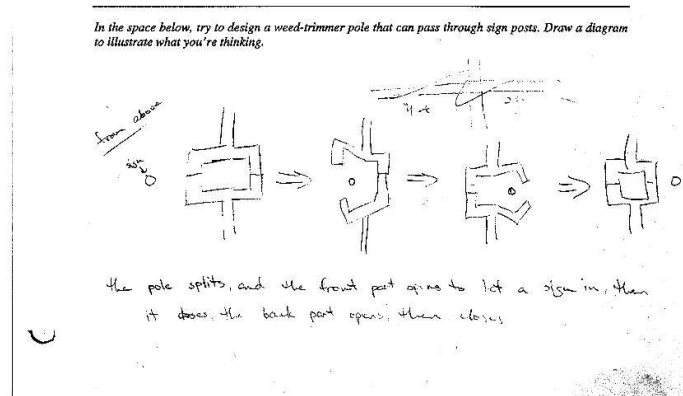 In the space below, try to design a weed-trimmer pole that can pass through sign posts. Draw a diagram
to illustrate what you're thinking.
from above
sign
the pole splits, and the front part opens to let a sign in, then
it closes, the back part opens, then closes